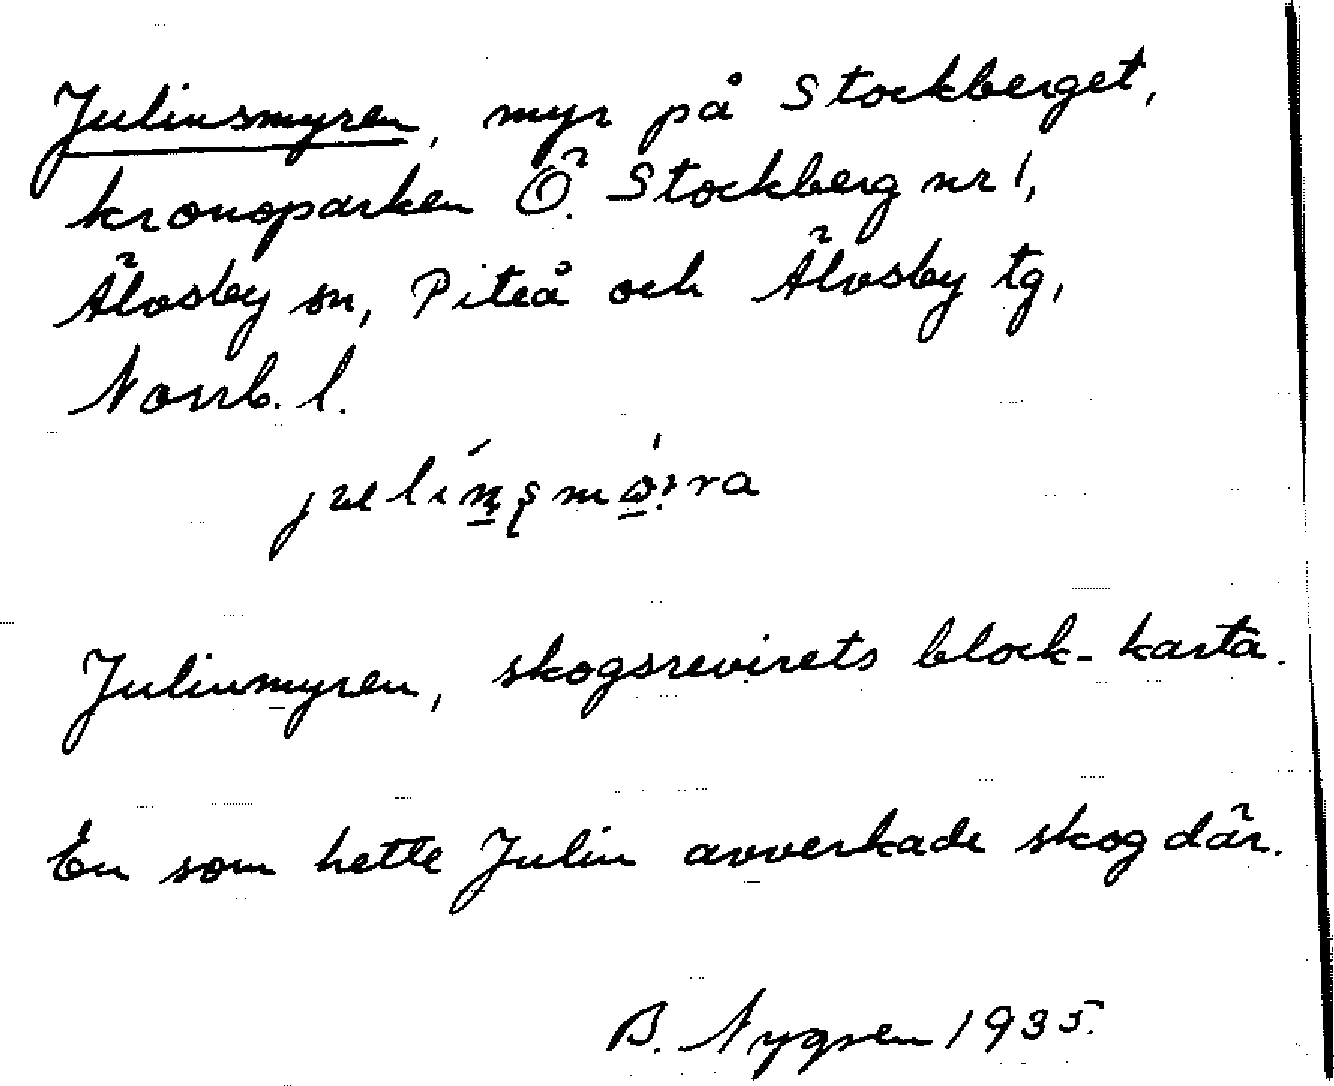 Julinsmyren, myr på Stockberget,
kronoparken Ö. Stockberg nr 1,
Älvsby sn, Piteå och Älvsby tg,
Norrb. l.
Julinmyren, skogsrevirets block-karta.
En som hette Julin avverkade skog där.
B. Nygren 1935.